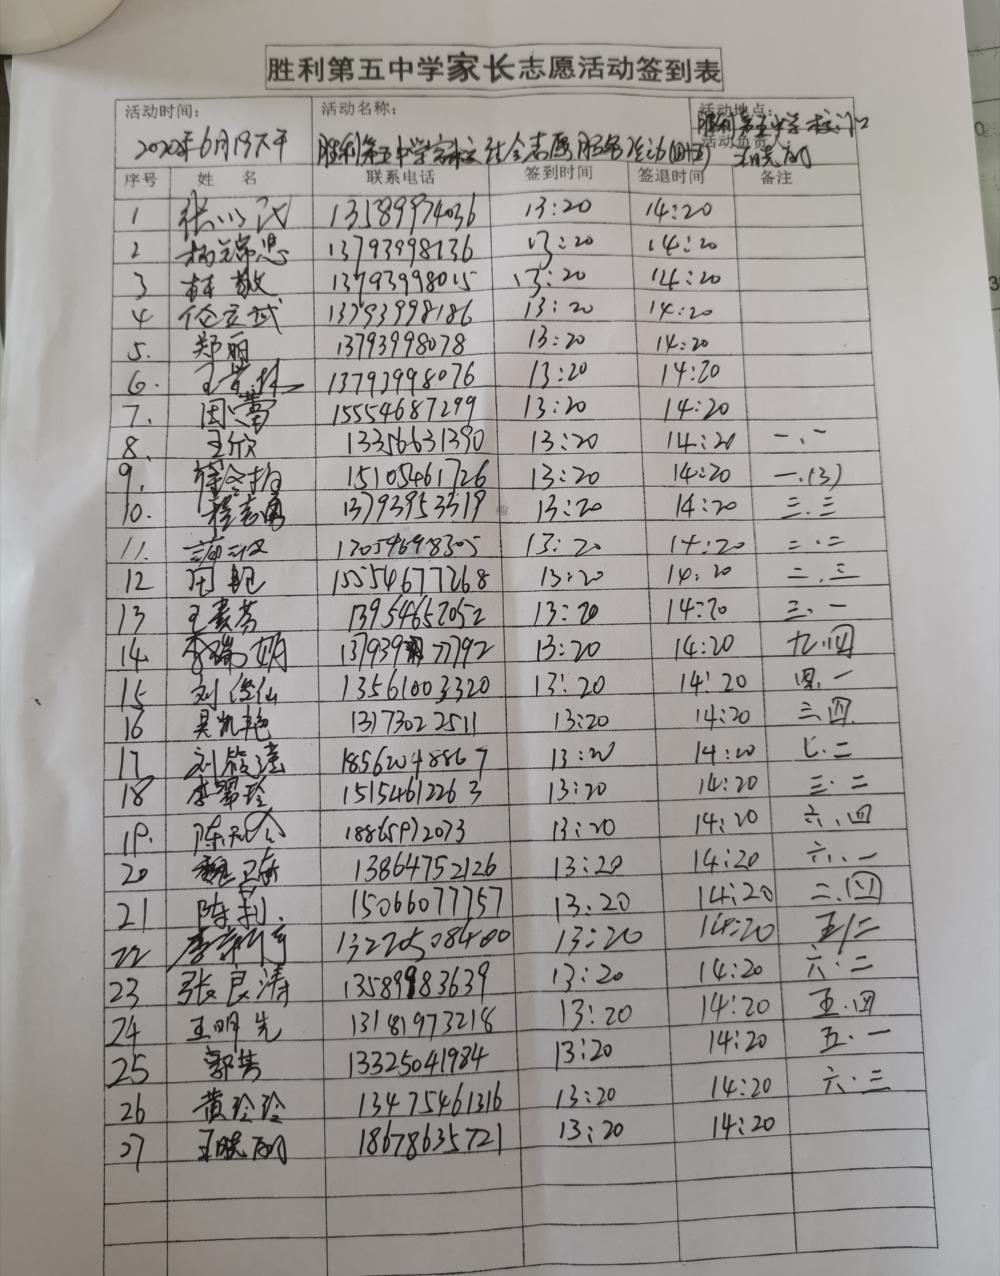 胜利第五中学家长志愿活动签到表
活动时间: 活动名称: 活动地点:
胜利第五中学校门口
2020年6月19下午 胜利第五中学 志愿服务活动 活动负责人
序号 姓名 联系电话 签到时间 签退时间 备注
1 13589974036 13:20 14:20
2 13793998136 13:20 14:20
3 林敬 13793998015 13:20 14:20
4 13793998186 13:20 14:20
5. 郑丽 13793998078 13:20 14:20
6. 13793998076 13:20 14:20
7. 15554687299 13:20 14:20
8. 王欣 13356631390 13:20 14:20 一.一
9. 15105461726 13:20 14:20 一.(3)
10. 13793953319 13:20 14:20 三.三
11. 13054698305 13:20 14:20 二.二
12 15554677268 13:20 14:20 二.三
13 王素芳 13954652052 13:20 14:20 三.一
14 李瑞娟 13793977792 13:20 14:20 九.四
15 刘 仙 13561003320 13:20 14:20 四.一
16 吴凯艳 13173022511 13:20 14:20 三.四
17 刘筱 18562048867 13:20 14:20 七.二
18 李翠玲 15154612263 13:20 14:20 三.二
19. 陈 18865972073 13:20 14:20 六.四
20 魏卫东 13864752126 13:20 14:20 六.一
21 陈利 15066077757 13:20 14:20 二.四
22 13220508400 13:20 14:20 五/二
23 张良涛 13589983639 13:20 14:20 六.二
24 王明先 13181973218 13:20 14:20 五.四
25 郭芳 13325041984 13:20 14:20 五.一
26 黄玲玲 13475461316 13:20 14:20 六.三
27 王晓丽 18678635721 13:20 14:20